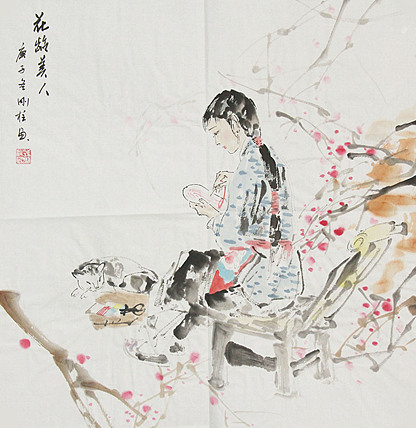 花龄美人
庚子冬刚柱画